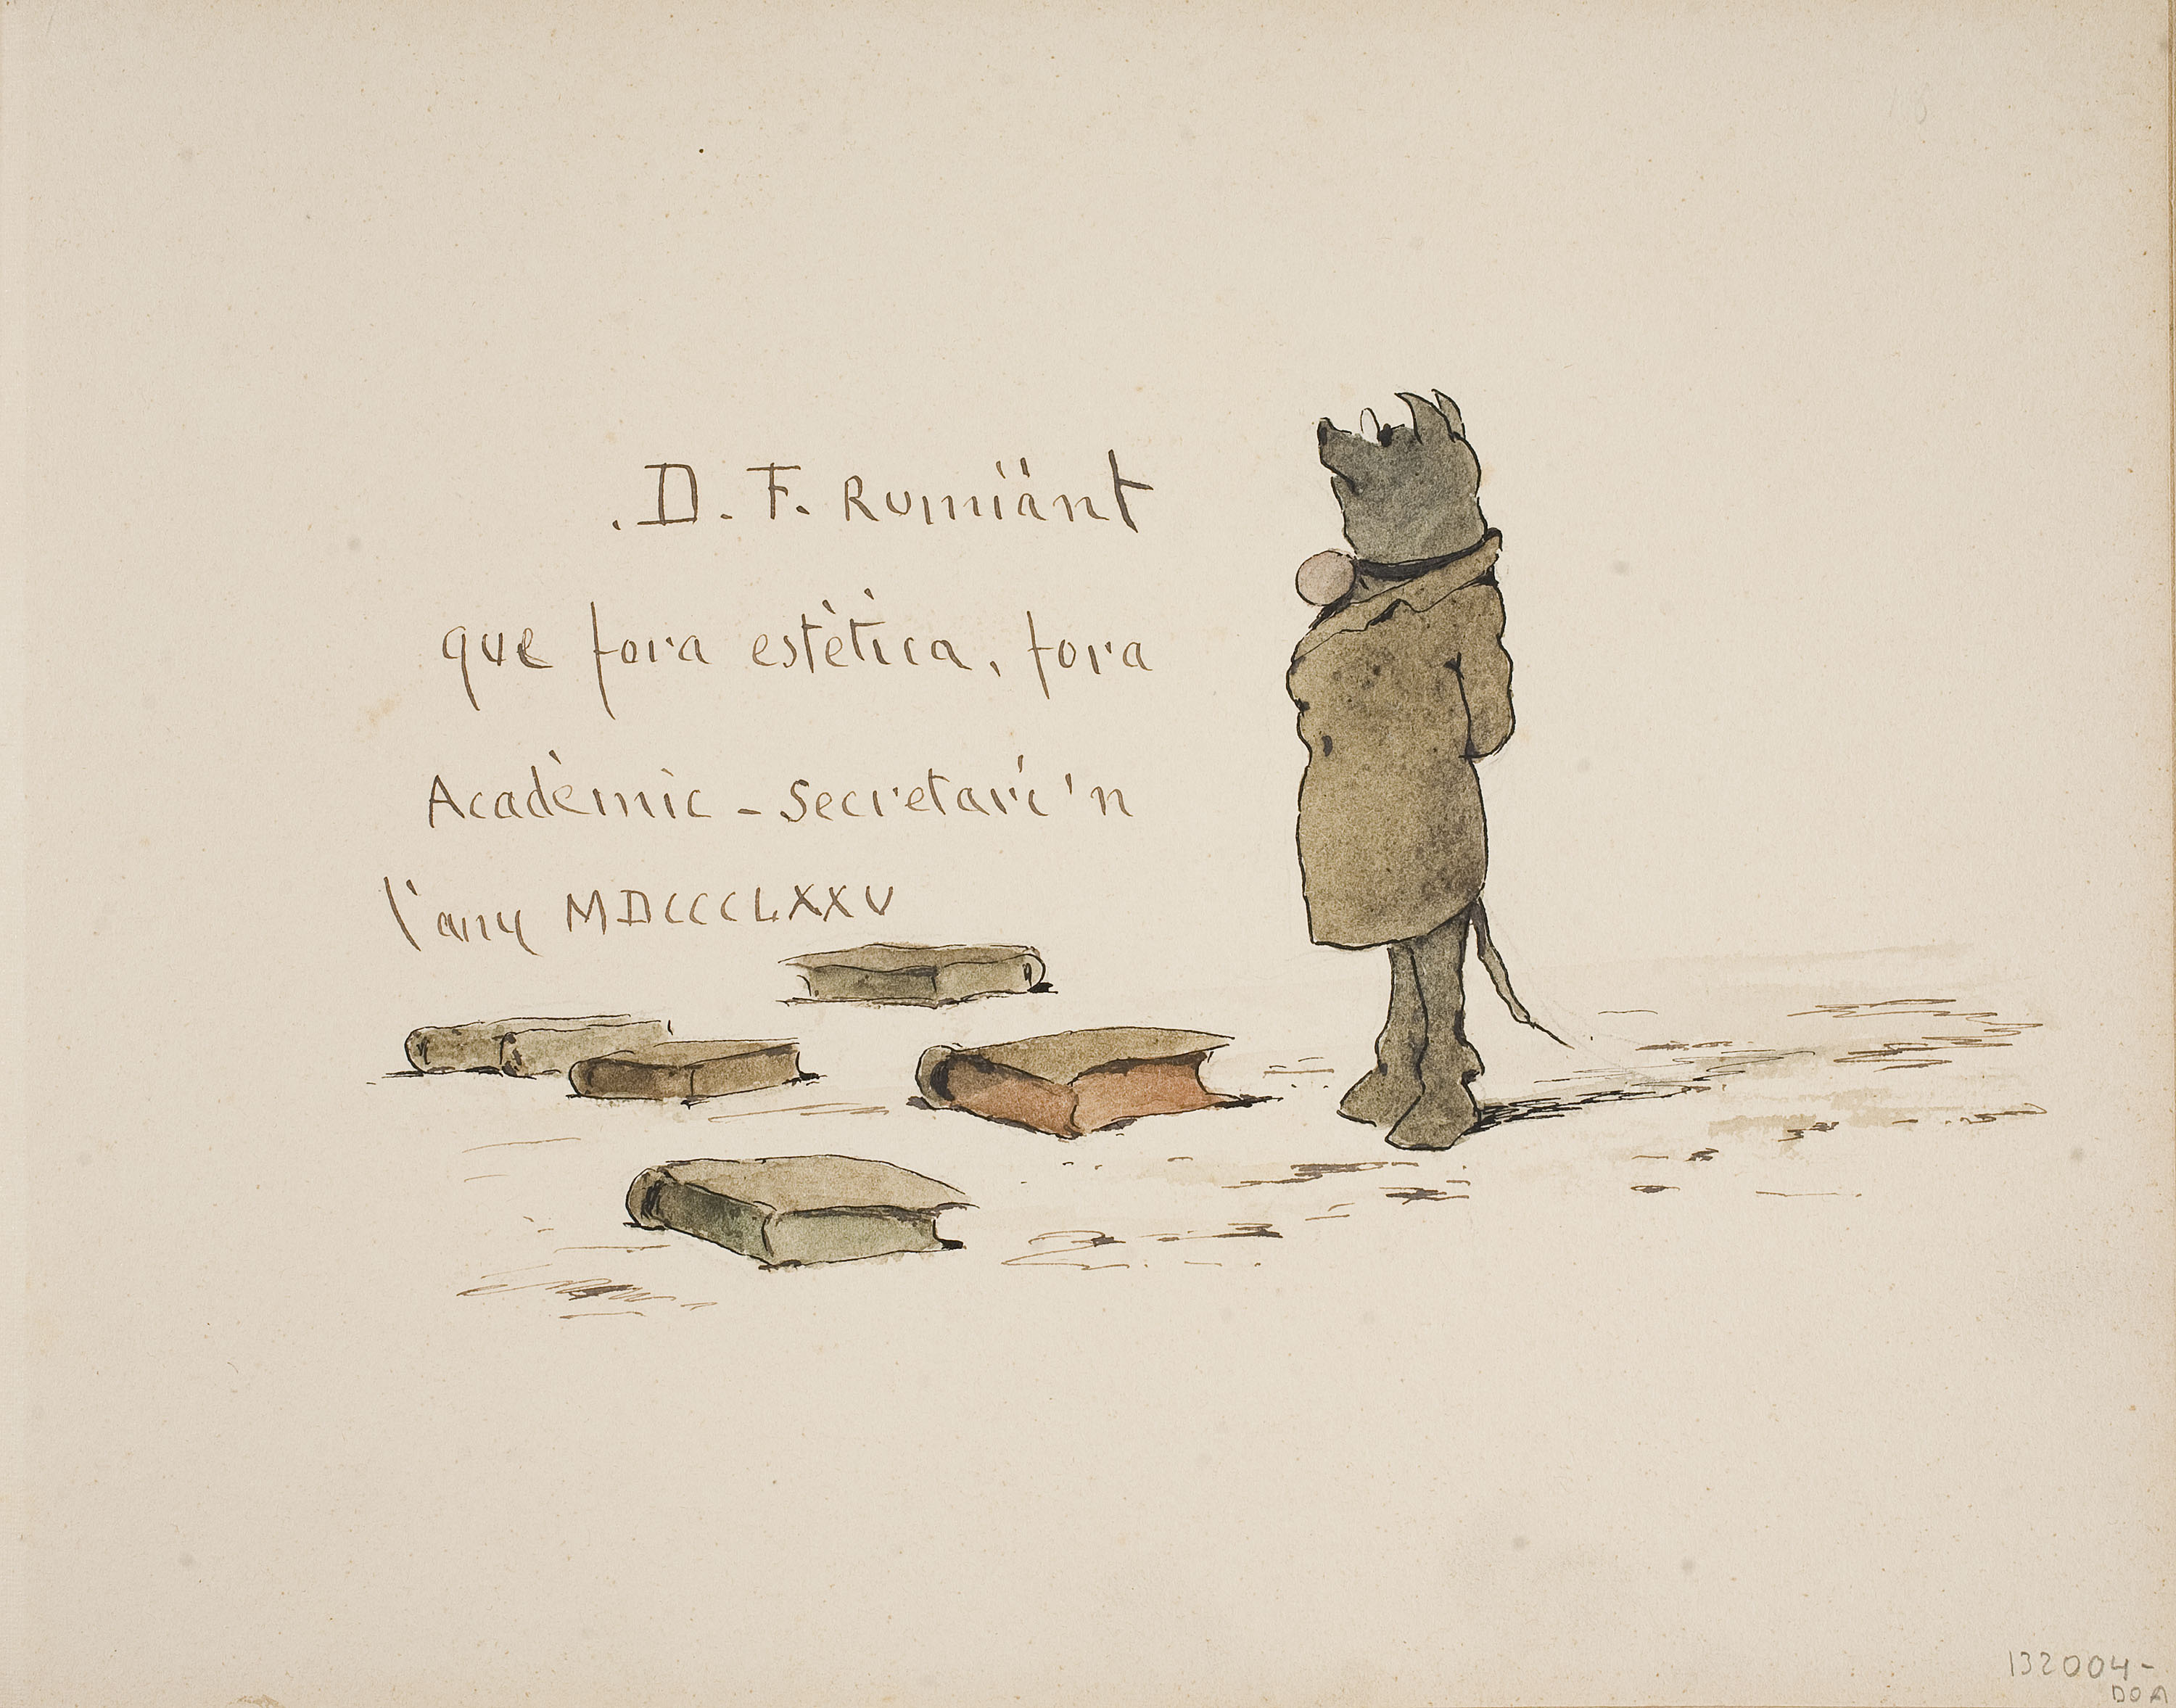 .D. F. Rumïant
que fora estètica, fora
Acadèmic - secretari 'n
l'any MDCCCLXXV
132004-
DOA